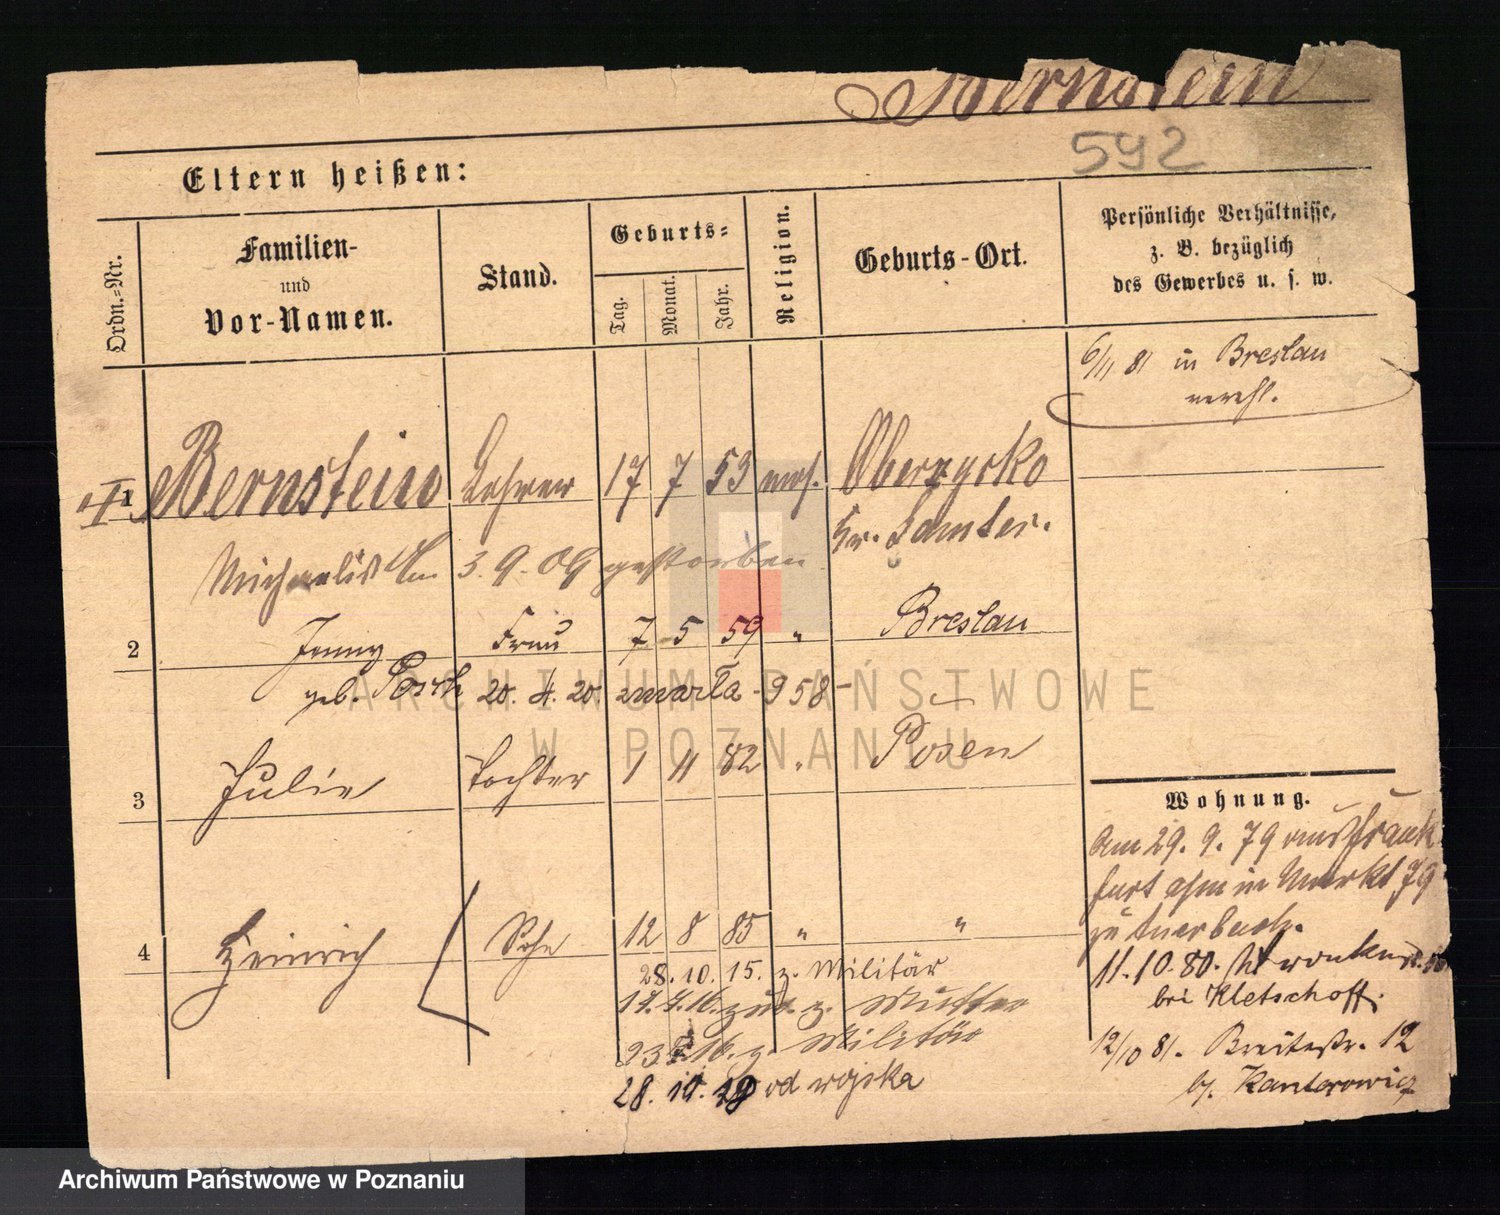 Bernstein
592
Eltern heißen:
Ordn.-Nr.
Familien-
und
Vor-Namen.
Stand.
Geburts-
Tag.
Monat.
Jahr.
Religion.
Geburts-Ort.
Persönliche Verhältnisse,
z. B. bezüglich
des Gewerbes u. s. w.
6/11 81 in Breslau
verehl.
1 Bernstein Lehrer 17 7 53 mos. Oberzycko
Kr. Samter.
Michaelis Am 3.9.09 gestorben
2 Jenny Frau 7 5 59 " Breslau
geb. 20. 4. 20 zmarła - 958 -
3 Julie Tochter 1 11 82 " Posen
4 Heinrich Sohn 12 8 85 " "
28. 10. 15. z. Militär
14. 4. 16. zur. z. Mutter
16. z. Militär
28. 10. 18 od wojska
Wohnung.
Am 29. 9. 79 aus Frank
furt in Markt 79
zu Auerbach.
11. 10. 80.
bei Kletschoff.
12/10 81. Breitestr. 12
b. Kantorowicz
ARCHIWUM PAŃSTWOWE
W POZNANIU
Archiwum Państwowe w Poznaniu